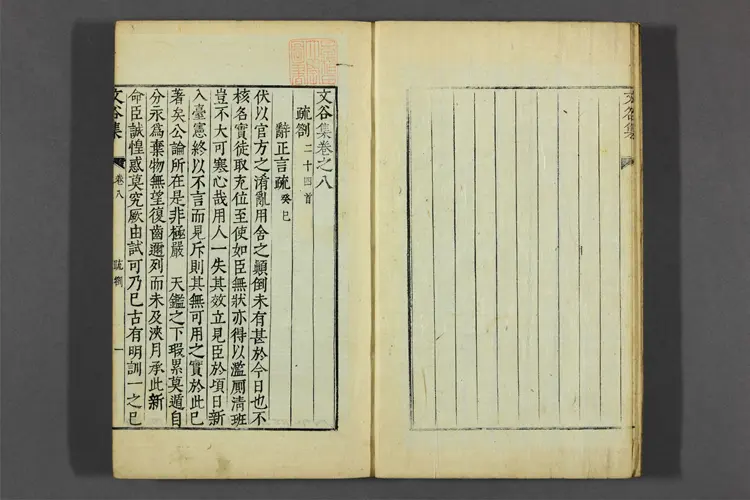 文谷集
文谷集卷之八
疏劄二十四首
辭正言疏癸巳
伏以官方之淆亂用舍之顚倒未有甚於今日也不
核名實徒取充位至使如臣無狀亦得以濫厠清班
豈不大可寒心哉用人一失其效立見臣於頃日新
入臺憲終以不言而見斥則其無可用之實於此已
著矣公論所在是非極嚴 天鑑之下瑕累莫逭自
分永爲棄物無望復齒邇列而未及浹月承此新
命臣誠惶惑莫究厥由試可乃已古有明訓一之已
文谷集 卷八 疏劄 一